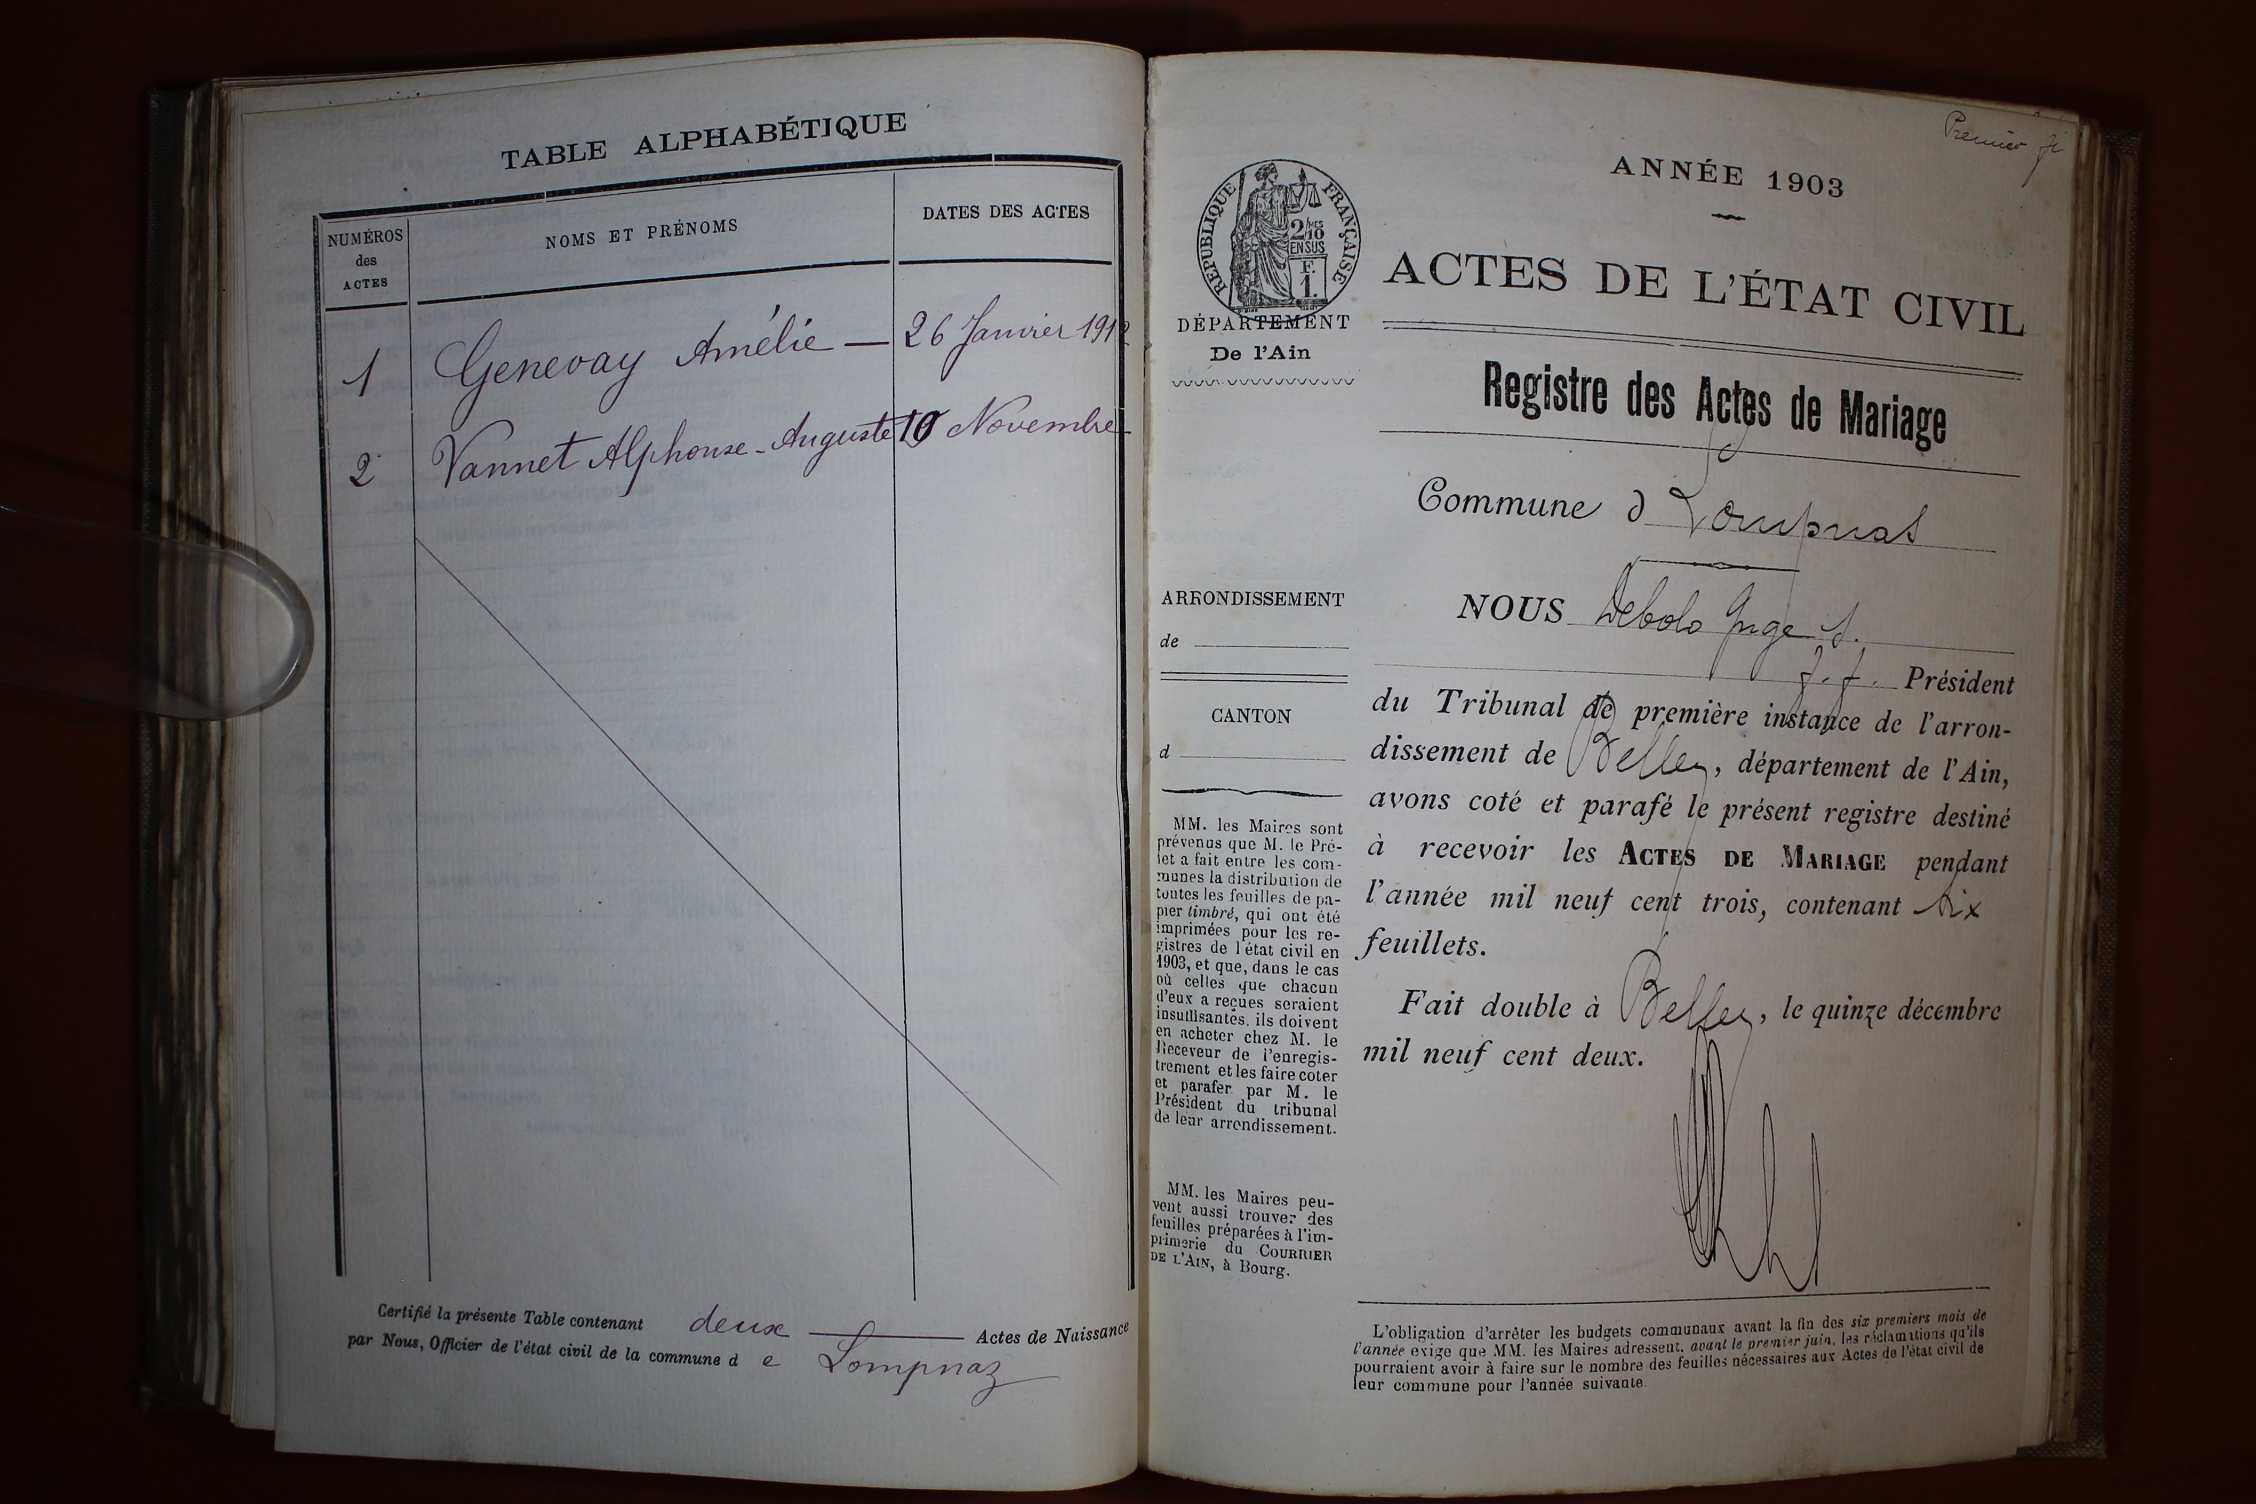 TABLE ALPHABÉTIQUE
NUMÉROS
des
ACTES
NOMS ET PRÉNOMS
DATES DES ACTES
1 Genevay Amélie — 26 Janvier 1912
2 Vannet Alphonse-Auguste 10 Novembre
Certifié la présente Table contenant deux Actes de Naissance
par Nous, Officier de l'état civil de la commune d e Lompnaz
Premier
ANNÉE 1903
RÉPUBLIQUE FRANÇAISE
2/10
EN SUS
F.
1.
ACTES DE L'ÉTAT CIVIL
DÉPARTEMENT
De l'Ain
Registre des Actes de Mariage
Commune d Lompnas
ARRONDISSEMENT
de
CANTON
d
MM. les Maires sont
prévenus que M. le Pré-
fet a fait entre les com-
munes la distribution de
toutes les feuilles de pa-
pier timbré, qui ont été
imprimées pour les re-
gistres de l'état civil en
1903, et que, dans le cas
où celles que chacun
d'eux a reçues seraient
insuffisantes, ils doivent
en acheter chez M. le
Receveur de l'enregis-
trement et les faire coter
et parafer par M. le
Président du tribunal
de leur arrondissement.
MM. les Maires peu-
vent aussi trouver des
feuilles préparées à l'im-
primerie du COURRIER
DE L'AIN, à Bourg.
NOUS Debolo Juge S.
f.f. Président
du Tribunal de première instance de l'arron-
dissement de Belley, département de l'Ain,
avons coté et parafé le présent registre destiné
à recevoir les ACTES DE MARIAGE pendant
l'année mil neuf cent trois, contenant six
feuillets.
Fait double à Belley, le quinze décembre
mil neuf cent deux.
L'obligation d'arrêter les budgets communaux avant la fin des six premiers mois de
l'année exige que MM. les Maires adressent, avant le premier juin, les réclamations qu'ils
pourraient avoir à faire sur le nombre des feuilles nécessaires aux Actes de l'état civil de
leur commune pour l'année suivante.